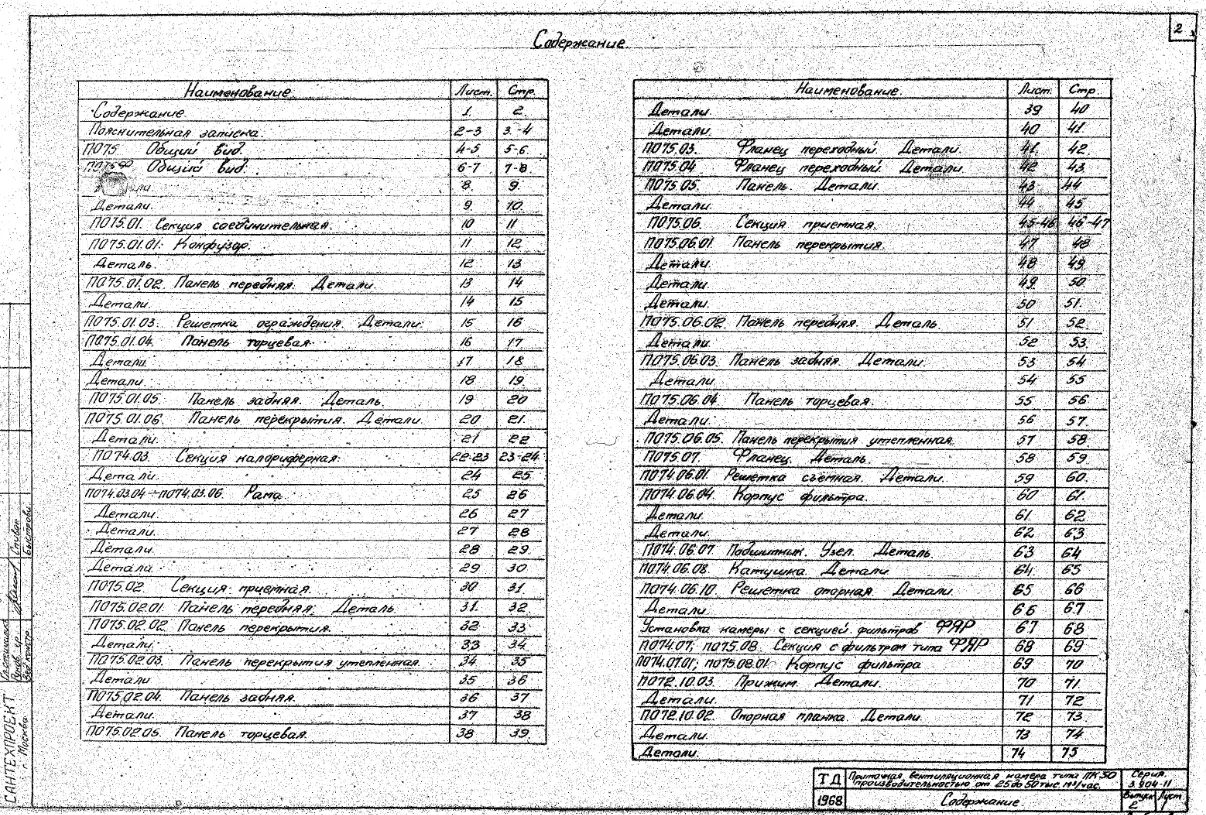 2
Содержание
Наименование Лист. Стр.
Содержание 1 2
Пояснительная записка 2-3 3-4
ПО75 Общий вид 4-5 5-6
Общий вид. 6-7 7-8
8 9
Детали. 9 10
ПО75.01. Секция соединительная 10 11
ПО75.01.01. Конфузор. 11 12
Деталь 12 13
ПО75.01.02. Панель передняя. Детали 13 14
Детали 14 15
ПО75.01.03. Решетка ограждения. Детали. 15 16
ПО75.01.04. Панель торцевая. 16 17
Детали 17 18
Детали 18 19
ПО75.01.05. Панель задняя. Деталь. 19 20
ПО75.01.06. Панель перекрытия. Детали 20 21
Детали 21 22
ПО74.03. Секция калориферная. 22-23 23-24
Детали 24 25
ПО74.03.04÷ПО74.03.06. Рама. 25 26
Детали. 26 27
Детали. 27 28
Детали 28 29
Детали 29 30
ПО75.02 Секция приемная 30 31
ПО75.02.01. Панель передняя. Деталь 31 32
ПО75.02.02. Панель перекрытия. 32 33
Детали. 33 34
ПО75.02.03. Панель перекрытия утепленная. 34 35
Детали 35 36
ПО75.02.04. Панель задняя. 36 37
Детали. 37 38
ПО75.02.05. Панель торцевая. 38 39
Наименование Лист Стр
Детали 39 40
Детали. 40 41
ПО75.03. Фланец переходный Детали. 41 42
ПО75.04 Фланец переходный Детали. 42 43
ПО75.05. Панель. Детали 43 44
Детали 44 45
ПО75.06 Секция приемная. 45-46 46-47
ПО75.06.01 Панель перекрытия. 47 48
Детали 48 49
Детали 49 50
Детали 50 51
ПО75.06.02. Панель передняя. Деталь 51 52
Детали 52 53
ПО75.06.03. Панель задняя. Детали 53 54
Детали 54 55
ПО75.06.04 Панель торцевая. 55 56
Детали 56 57
ПО75.06.05. Панель перекрытия утепленная. 57 58
ПО75.07. Фланец. Деталь 58 59
ПО74.06.01. Решетка съёмная. Детали 59 60
ПО74.06.04. Корпус фильтра. 60 61
Детали. 61 62
Детали 62 63
ПО74.06.07. Подшипник. Узел. Деталь 63 64
ПО74.06.08. Катушка. Детали 64 65
ПО74.06.10. Решетка опорная Детали. 65 66
Детали 66 67
Установка камеры с секцией фильтров ФЯР 67 68
ПО74.07, ПО75.08. Секция с фильтром типа ФЯР 68 69
ПО74.07.01; ПО75.08.01 Корпус фильтра 69 70
ПО72.10.03. Прижим. Детали. 70 71
Детали. 71 72
ПО72.10.02. Опорная планка. Детали. 72 73
Детали 73 74
Детали. 74 75
САНТЕХПРОЕКТ
г. Москва
ТД Приточная вентиляционная камера типа ПК50 Серия
производительностью от 25 до 50 тыс. м³/час. 3.904-11
1968 Содержание Выпуск Лист
2 1